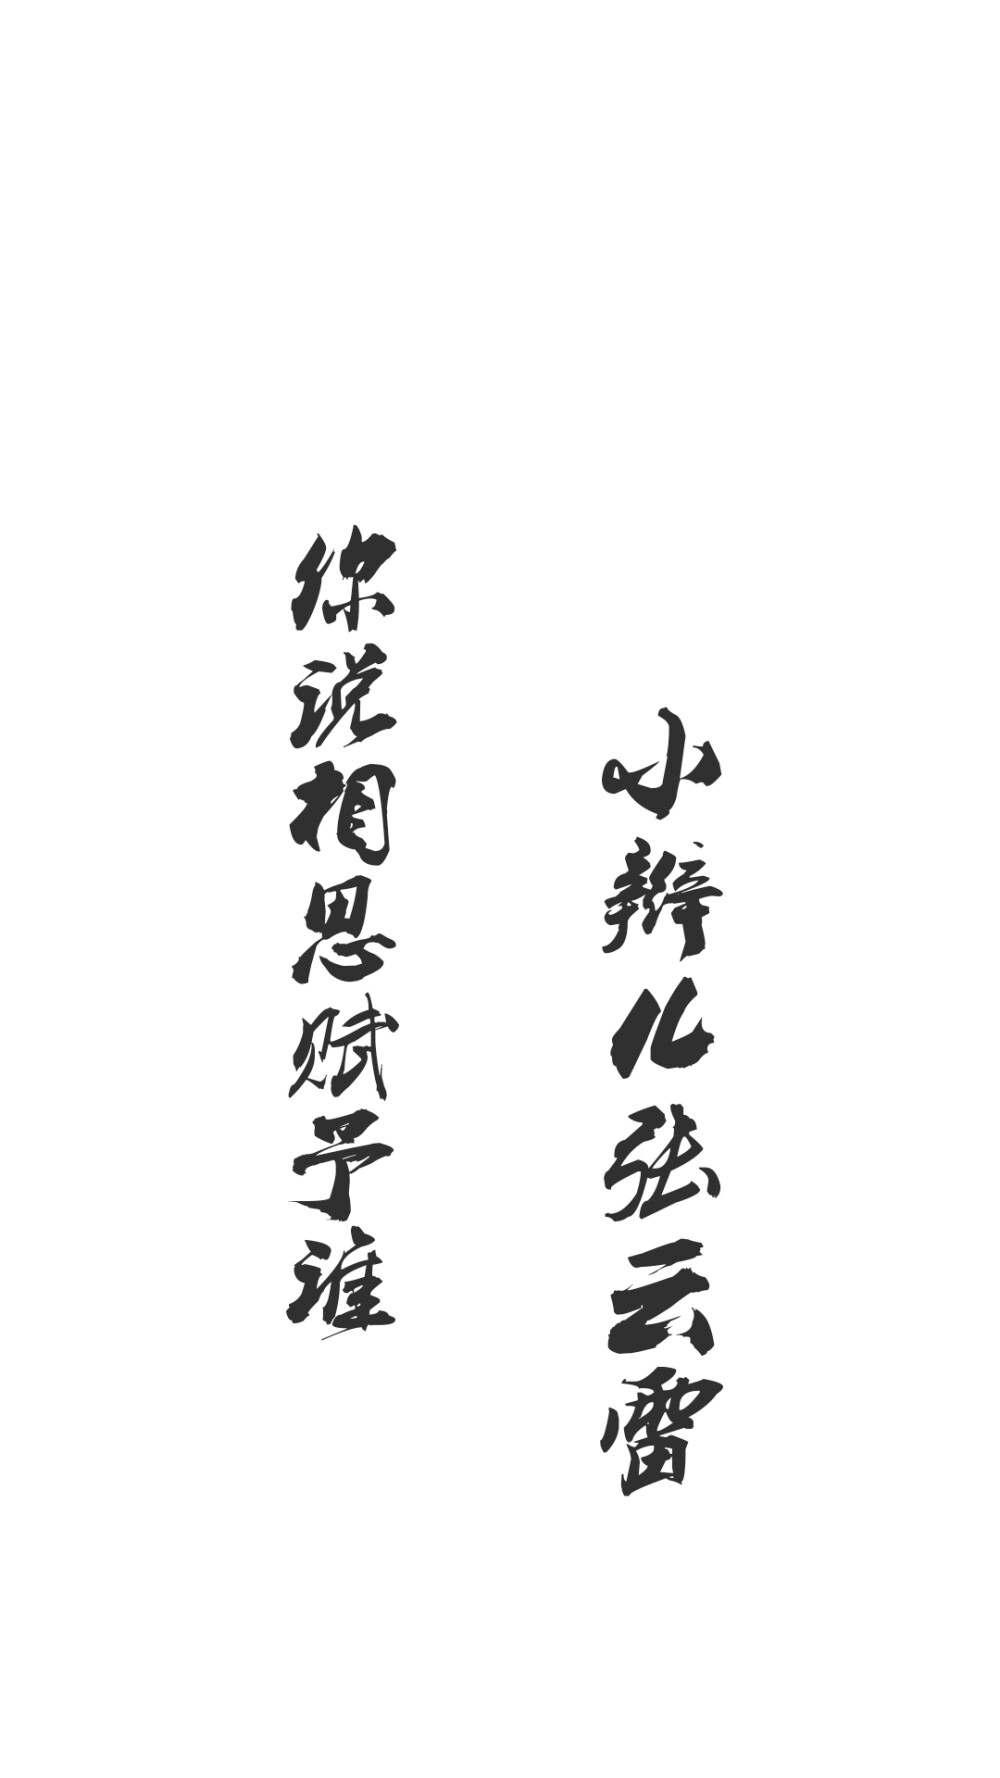 你说相思赋予谁
小辫儿张云雷